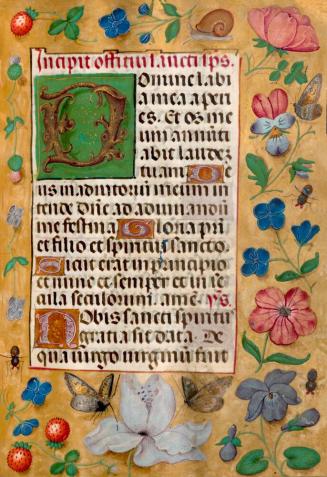 Incipit offitiu sancti sps.
Domine labi
a mea aperi
es. Et os me
um annūti
abit laudez
tuam De
us in adiutoriū meum in
tende Dn̄e ad adiuvandū
me festina Gloria pr̄i
et filio et spiritui sancto
Sicut erat in principio
et nunc et semper et in se
cula seculorum. amē. ym̄s.
Nobis sancti spiritus
gratia sit data. De
qua virgo virginum fuit